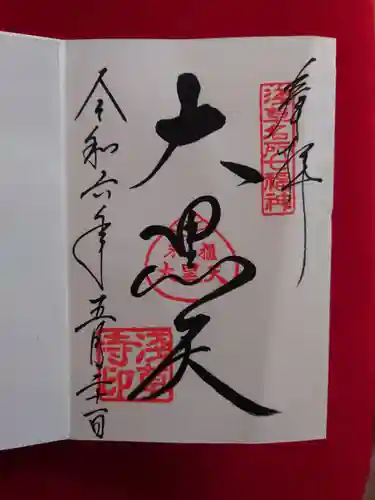 奉拝
浅草名所七福神
大黒天
大黒天
浅草寺印
令和六年五月二十一日